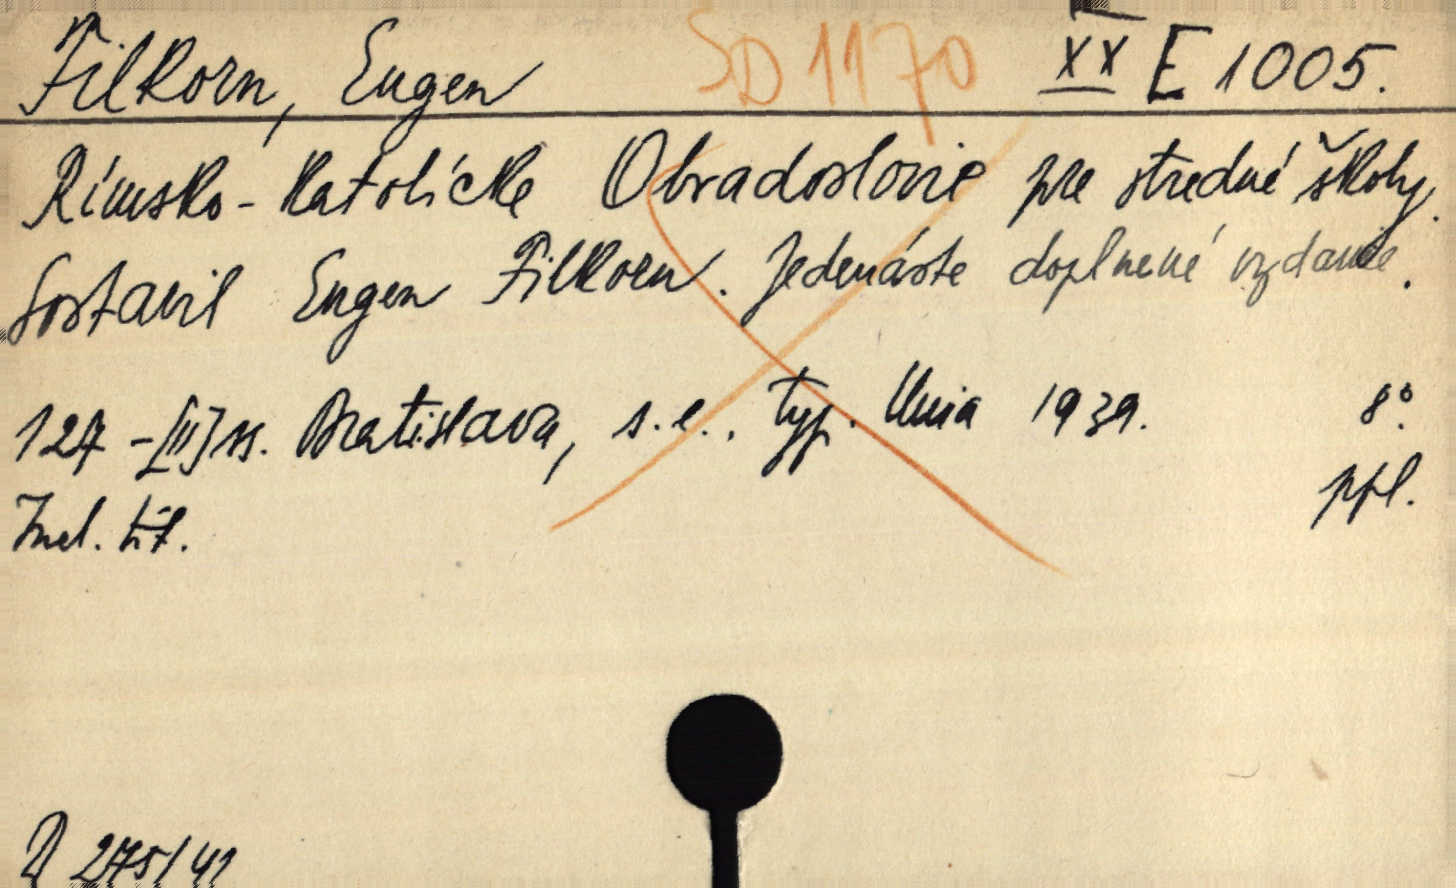 Filkorn, Eugen SD 1170 XX E 1005.
Rímsko-katolícke Obradoslovie pre stredné školy.
Sostavil Eugen Filkorn. Jedenáste doplnené vydanie.
127 -[II] ss. Bratislava, s.e., typ. Unia 1939. 8°
Incl. tit. ppl.
275/41